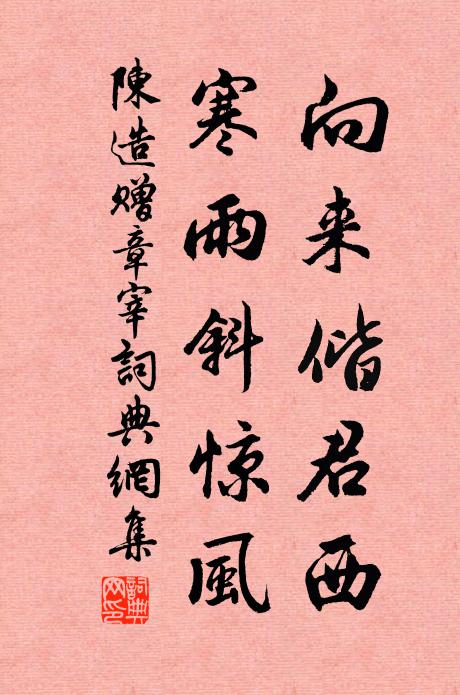 向来偕君西
寒雨斜惊風
陳造赠章宰詞典網集
詞典網印